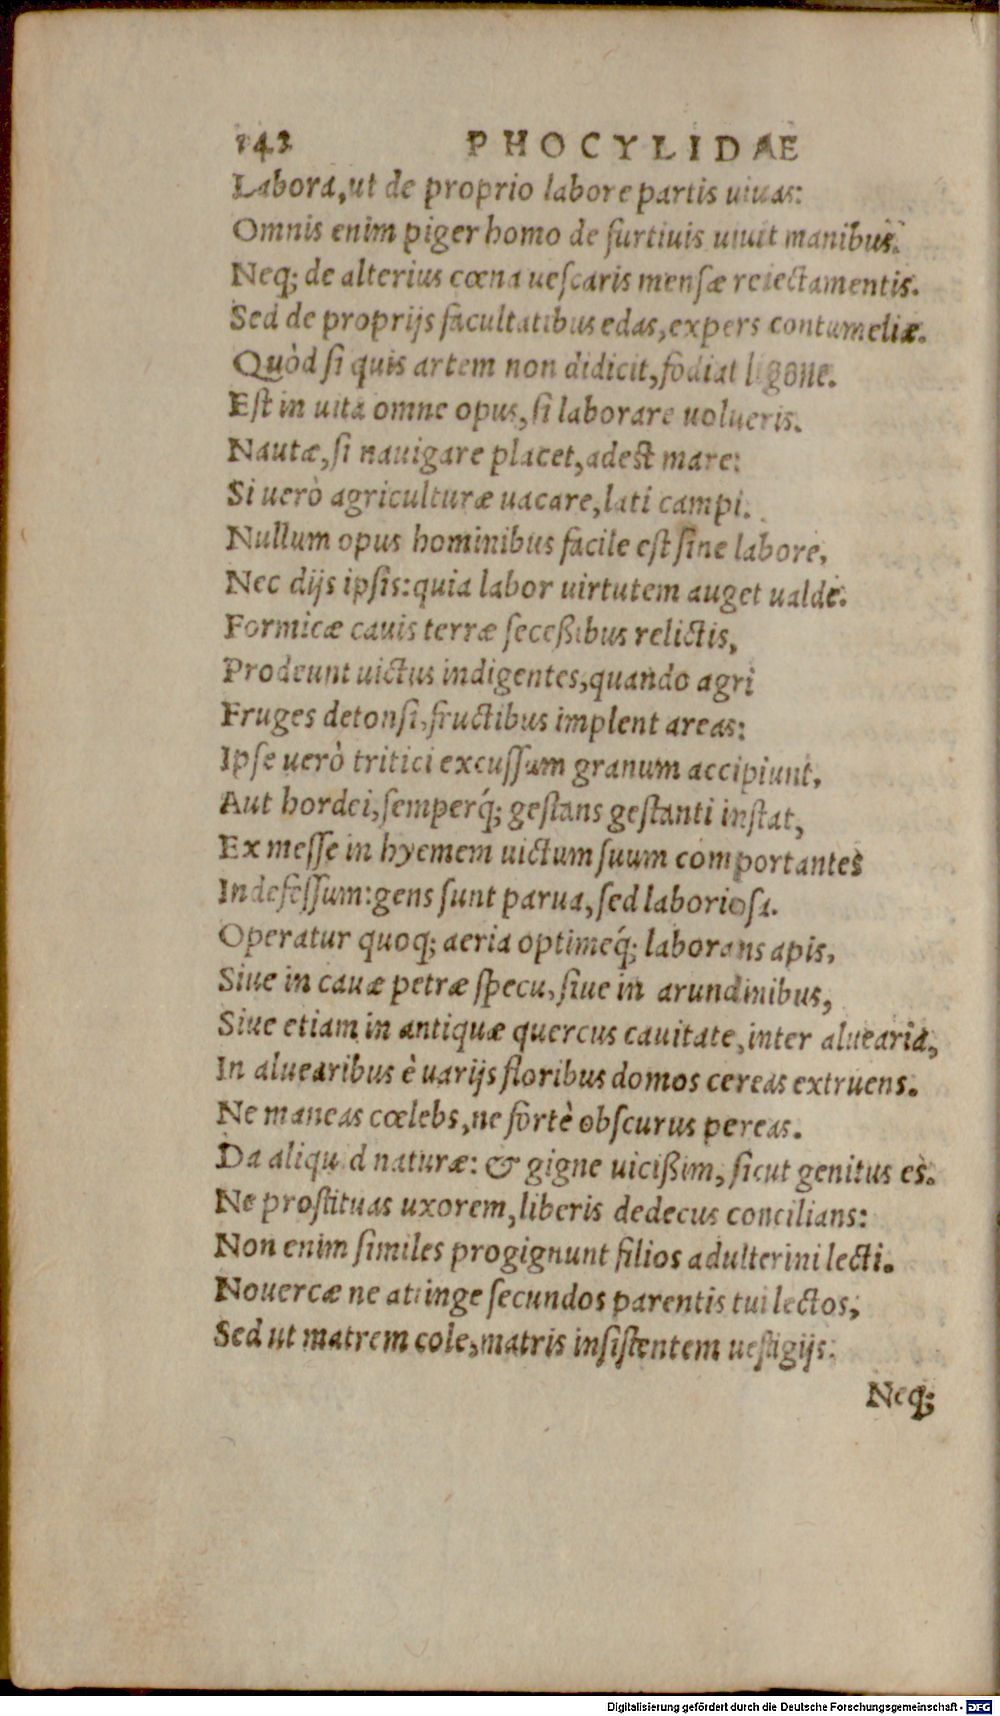 142 PHOCYLIDAE
Labora, ut de proprio labore partis uiuas:
Omnis enim piger homo de furtiuis uiuit manibus.
Neq; de alterius cœna ueſcaris menſæ reiectamentis.
Sed de proprijs facultatibus edas, expers contumeliæ.
Quòd ſi quis artem non didicit, fodiat ligone.
Eſt in uita omne opus, ſi laborare uolueris.
Nautæ, ſi nauigare placet, adeſt mare:
Si uerò agriculturæ uacare, lati campi.
Nullum opus hominibus facile eſt ſine labore,
Nec dijs ipſis: quia labor uirtutem auget ualde.
Formicæ cauis terræ ſeceßibus relictis,
Prodeunt uictus indigentes, quando agri
Fruges detonſi, fructibus implent areas:
Ipſe uerò tritici excuſſum granum accipiunt,
Aut hordei, ſemperq́; geſtans geſtanti inſtat,
Ex meſſe in hyemem uictum ſuum comportantes
Indefeſſum: gens ſunt parua, ſed laborioſa.
Operatur quoq; aeria optimeq́; laborans apis,
Siue in cauæ petræ ſpecu, ſiue in arundinibus,
Siue etiam in antiquæ quercus cauitate, inter aluearia,
In aluearibus è uarijs floribus domos cereas extruens.
Ne maneas cœlebs, ne fortè obſcurus pereas.
Da aliquid naturæ: & gigne uicißim, ſicut genitus es.
Ne proſtituas uxorem, liberis dedecus concilians:
Non enim ſimiles progignunt filios adulterini lecti.
Nouercæ ne attinge ſecundos parentis tui lectos,
Sed ut matrem cole, matris inſiſtentem ueſtigijs.
Neq;
Digitalisierung gefördert durch die Deutsche Forschungsgemeinschaft - DFG